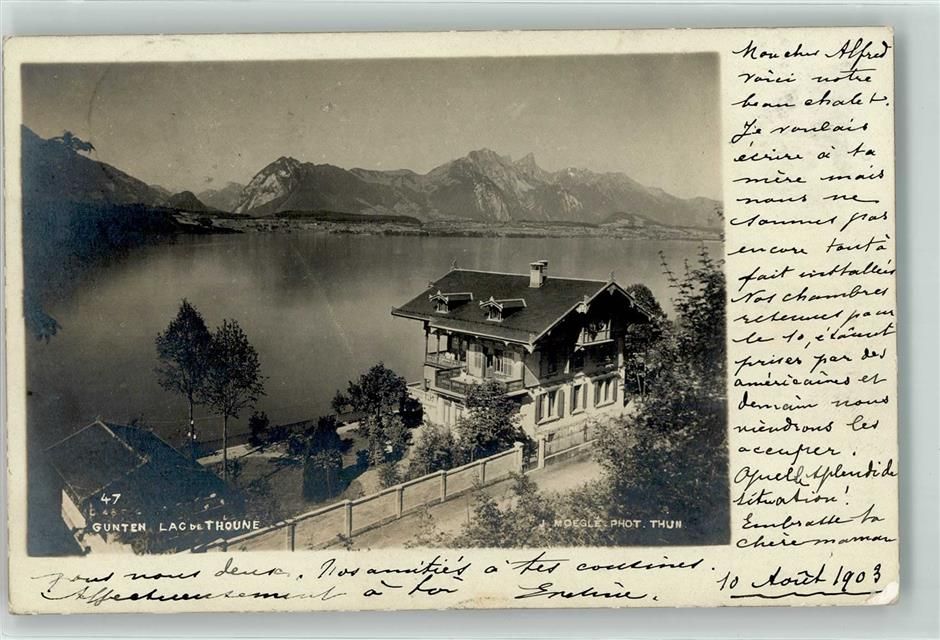 Mon cher Alfred
voici notre
beau chalet.
Je voulais
écrire à ta
mère mais
nous ne
sommes pas
encore tout à
fait installés
Nos chambres
retenues pour
le 10, étaient
prises par des
américains et
demain nous
viendrons les
occuper.
Quelle splendide
situation!
Embrasse ta
chère maman
pour nous deux. Nos amitiés à tes cousines.
Affectueusement à toi
10 Août 1903
47
GUNTEN LAC DE THOUNE
J. MOEGLE-PHOT. THUN